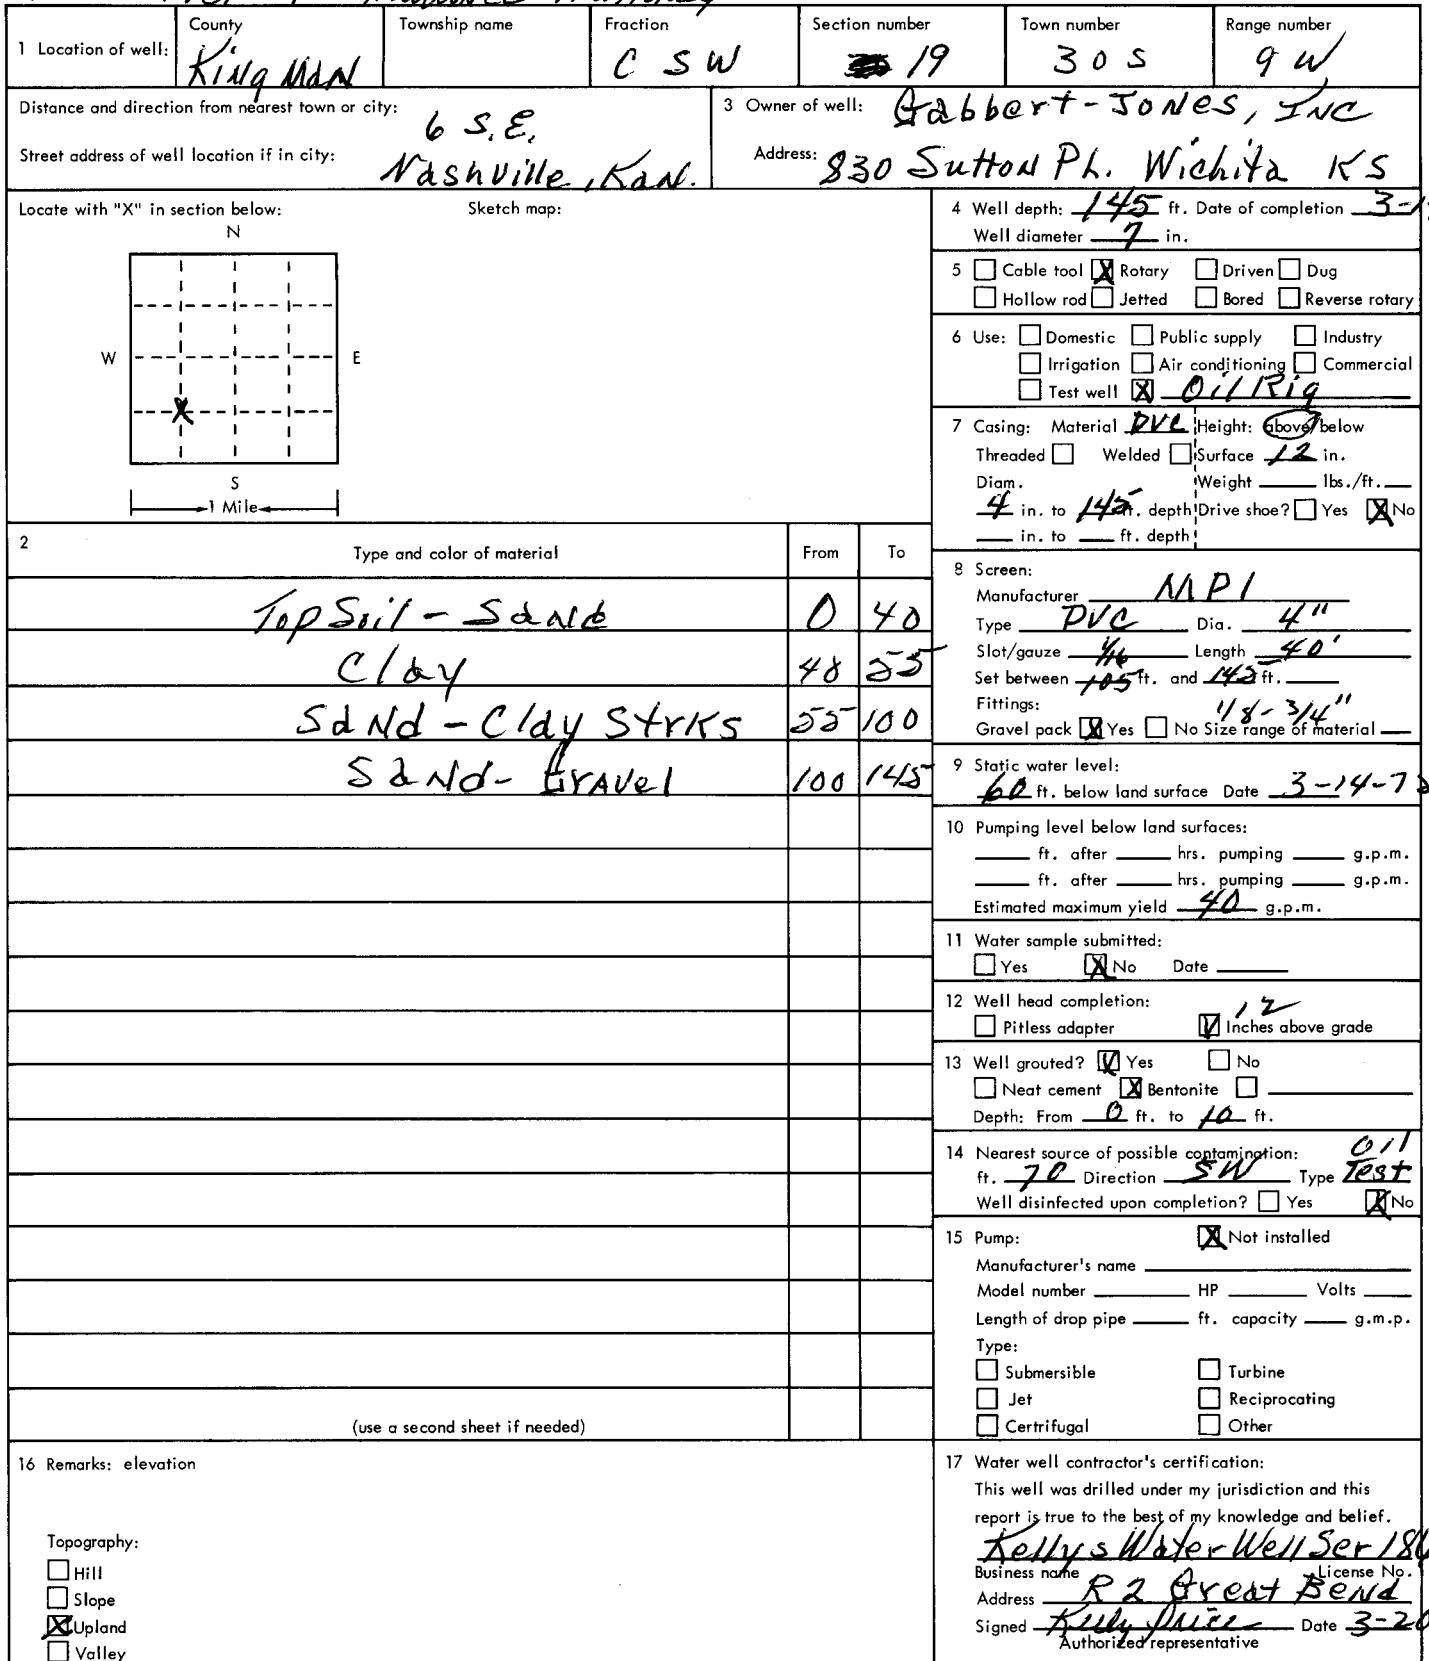 1 Location of well:
County
Kingman
Township name
Fraction
C SW
Section number
19
Town number
30 S
Range number
9 W
Distance and direction from nearest town or city:
6 S.E.
Street address of well location if in city:
Nashville, Kan.
3 Owner of well: Gabbert-Jones, Inc
Address: 830 Sutton Pl. Wichita KS
Locate with "X" in section below:
Sketch map:
N
W
E
X
S
1 Mile
4 Well depth: 145 ft. Date of completion 3-1
Well diameter 7 in.
5 Cable tool X Rotary Driven Dug
Hollow rod Jetted Bored Reverse rotary
6 Use: Domestic Public supply Industry
Irrigation Air conditioning Commercial
Test well X Oil Rig
7 Casing: Material PVC Height: above/below
Threaded Welded Surface 12 in.
Diam. Weight lbs./ft.
4 in. to 145 ft. depth Drive shoe? Yes X No
in. to ft. depth
2
Type and color of material From To
Top Soil - Sand 0 40
Clay 48 55
Sand - Clay Strks 55 100
Sand - Gravel 100 145
(use a second sheet if needed)
8 Screen:
Manufacturer MPI
Type PVC Dia. 4"
Slot/gauze 1/16 Length 40'
Set between 105 ft. and 145 ft.
Fittings:
1/8 - 3/4"
Gravel pack X Yes No Size range of material
9 Static water level:
60 ft. below land surface Date 3-14-78
10 Pumping level below land surfaces:
ft. after hrs. pumping g.p.m.
ft. after hrs. pumping g.p.m.
Estimated maximum yield 40 g.p.m.
11 Water sample submitted:
Yes X No Date
12 Well head completion:
12
Pitless adapter Inches above grade
13 Well grouted? Yes No
Neat cement X Bentonite
Depth: From 0 ft. to 10 ft.
14 Nearest source of possible contamination: Oil
ft. 70 Direction SW Type Test
Well disinfected upon completion? Yes X No
15 Pump: X Not installed
Manufacturer's name
Model number HP Volts
Length of drop pipe ft. capacity g.m.p.
Type:
Submersible Turbine
Jet Reciprocating
Certrifugal Other
16 Remarks: elevation
Topography:
Hill
Slope
X Upland
Valley
17 Water well contractor's certification:
This well was drilled under my jurisdiction and this
report is true to the best of my knowledge and belief.
Kellys Water Well Ser 186
Business name License No.
Address R 2 Great Bend
Signed Kelly Price Date 3-20
Authorized representative